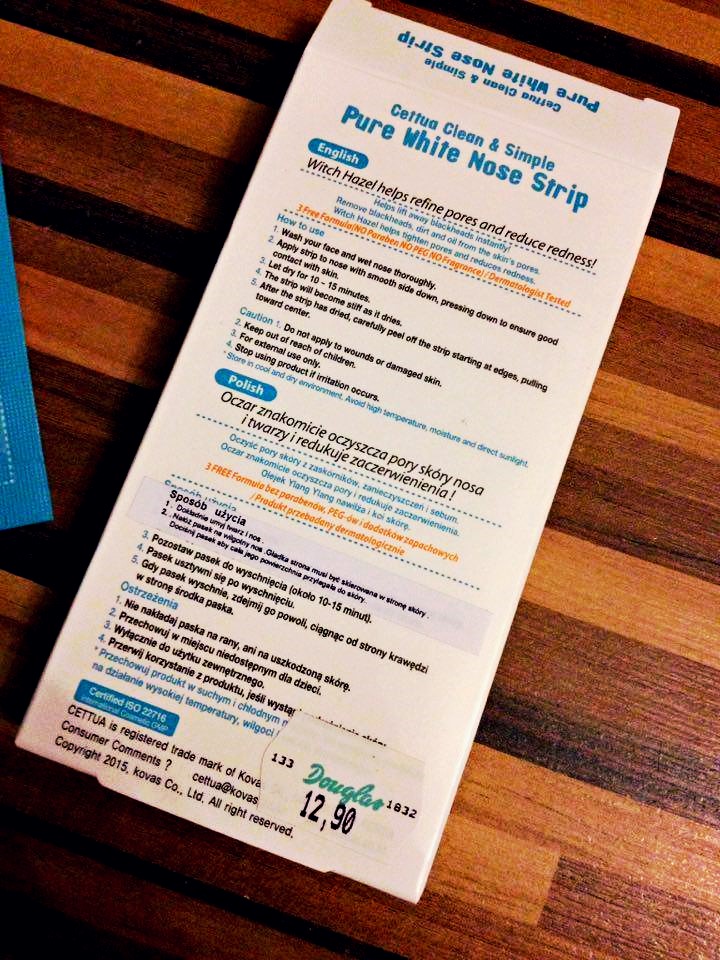 Pure White Nose Strip
Cettua Clean & Simple
Cettua Clean & Simple
Pure White Nose Strip
English
Witch Hazel helps refine pores and reduce redness!
Helps lift away blackheads instantly!
Remove blackheads, dirt and oil from the skin's pores.
Witch Hazel helps tighten pores and reduces redness.
3 Free Formula(NO Paraben NO PEG NO Fragrance) / Dermatologist Tested
How to use
1. Wash your face and wet nose thoroughly.
2. Apply strip to nose with smooth side down, pressing down to ensure good
contact with skin.
3. Let dry for 10 ~ 15 minutes.
4. The strip will become stiff as it dries.
5. After the strip has dried, carefully peel off the strip starting at edges, pulling
toward center.
Caution 1. Do not apply to wounds or damaged skin.
2. Keep out of reach of children.
3. For external use only.
4. Stop using product if irritation occurs.
* Store in cool and dry environment. Avoid high temperature, moisture and direct sunlight.
Polish
Oczar znakomicie oczyszcza pory skóry nosa
i twarzy i redukuje zaczerwienienia !
Oczyść pory skóry z zaskorników, zanieczyszczeń i sebum.
Oczar znakomicie oczyszcza pory i redukuje zaczerwienienia.
Olejek Ylang Ylang nawilża i koi skórę.
3 FREE Formule bez parabenów, PEG-ów i dodatków zapachowych
/ Produkt przebadany dermatologicznie
Sposób użycia
1. Dokładnie umyj twarz i nos.
2. Nałóż pasek na wilgotny nos. Gładka strona musi być skierowana w stronę skóry.
Dociśnij pasek aby cała jego powierzchnia przylegała do skóry.
3. Pozostaw pasek do wyschnięcia (około 10-15 minut).
4. Pasek usztywni się po wyschnięciu.
5. Gdy pasek wyschnie, zdejmij go powoli, ciągnąc od strony krawędzi
w stronę środka paska.
Ostrzeżenia
1. Nie nakładaj paska na rany, ani na uszkodzoną skórę.
2. Przechowuj w miejscu niedostępnym dla dzieci.
3. Wyłącznie do użytku zewnętrznego.
4. Przerwij korzystanie z produktu, jeśli
* Przechowuj produkt w suchym i chłodnym
na działanie wysokiej temperatury, wilgoci
Certified ISO 22716
International Cosmetic GMP
CETTUA is registered trade mark of
Consumer Comments ? cettua@kovas
Copyright 2015, kovas Co., Ltd. All right reserved.
133
Douglas
1832
12,90